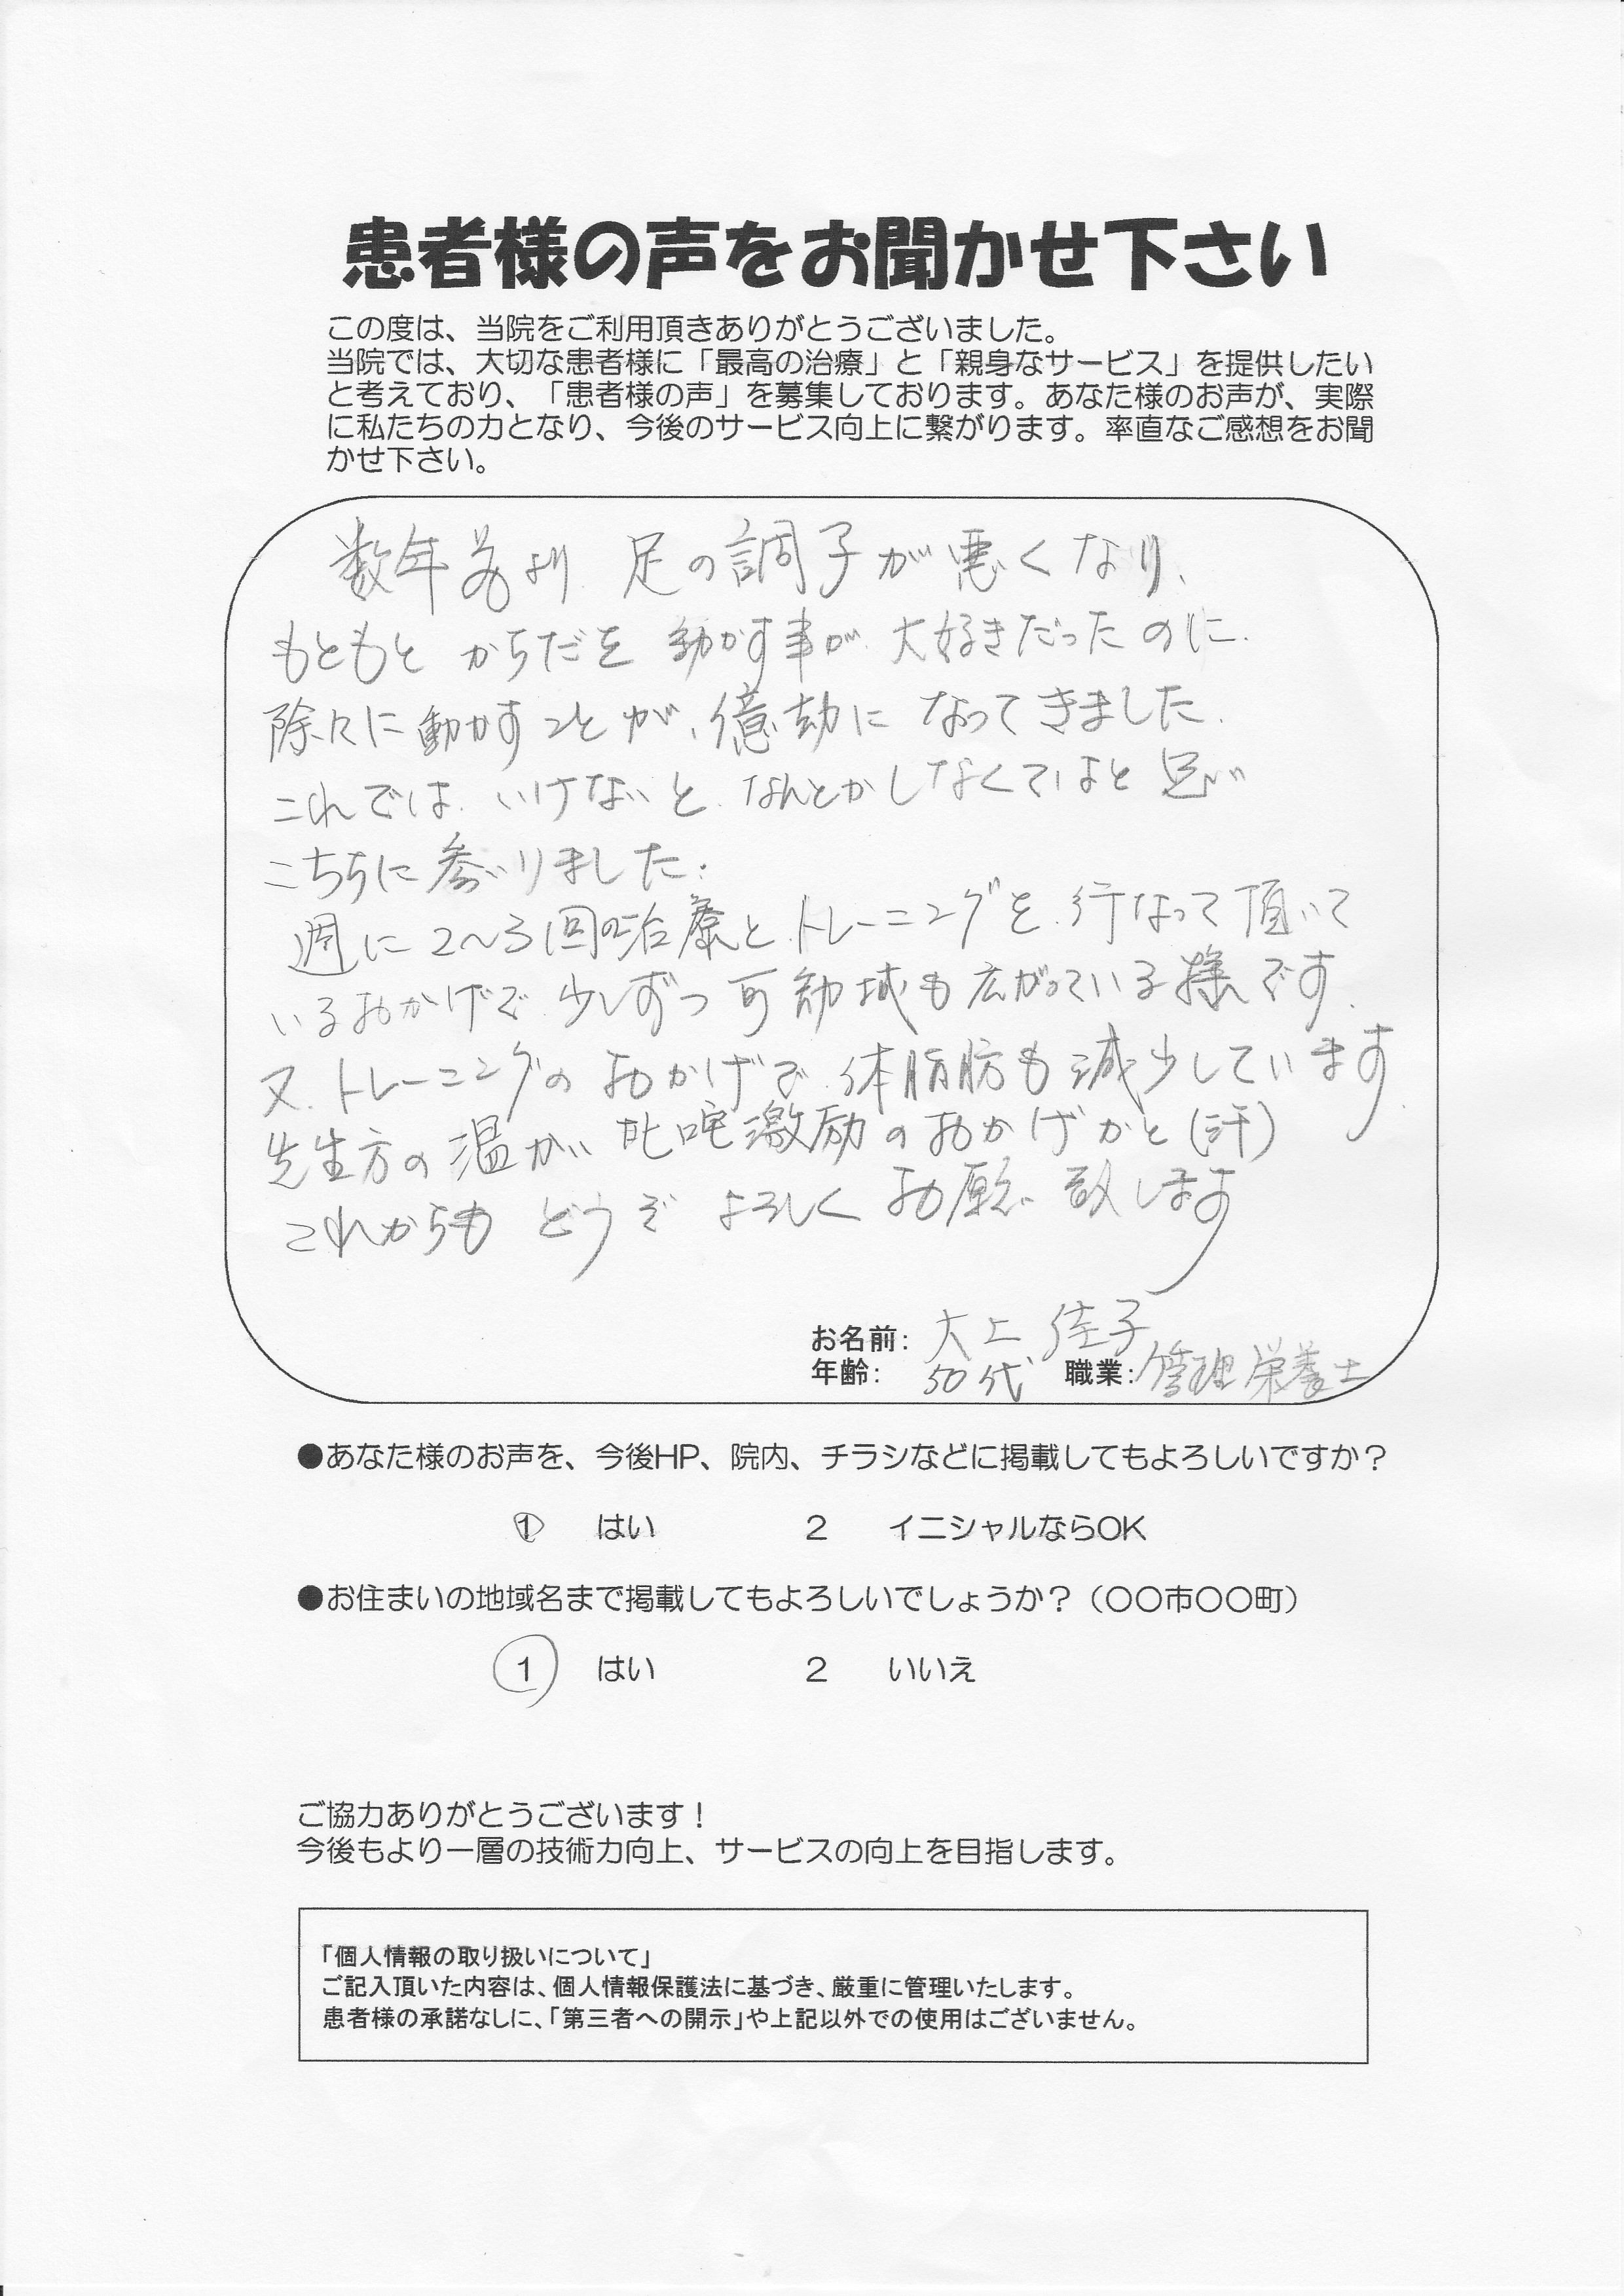 患者様の声をお聞かせ下さい
この度は、当院をご利用頂きありがとうございました。
当院では、大切な患者様に「最高の治療」と「親身なサービス」を提供したい
と考えており、「患者様の声」を募集しております。あなた様のお声が、実際
に私たちの力となり、今後のサービス向上に繋がります。率直なご感想をお聞
かせ下さい。
数年前より 足の調子が悪くなり、
もともと からだを 動かす事が 大好きだったのに
除々に動かすことが、億劫に なってきました。
これでは、いけないと、なんとかしなくてはと思い
こちらに参いりました。
週に2〜3回の治療と、トレーニングを、行なって頂いて
いるおかげで 少しずつ可動域も広がっている様です。
又、トレーニングの おかげで 体脂肪も減少しています。
先生方の温かい叱咤激励のおかげかと(汗)
これからも どうぞ よろしく お願い致します
お名前: 大上 佳子
年齢: 50代 職業: 管理栄養士
●あなた様のお声を、今後HP、院内、チラシなどに掲載してもよろしいですか？
1 はい 2 イニシャルならOK
●お住まいの地域名まで掲載してもよろしいでしょうか？（〇〇市〇〇町）
1 はい 2 いいえ
ご協力ありがとうございます！
今後もより一層の技術力向上、サービスの向上を目指します。
「個人情報の取り扱いについて」
ご記入頂いた内容は、個人情報保護法に基づき、厳重に管理いたします。
患者様の承諾なしに、「第三者への開示」や上記以外での使用はございません。